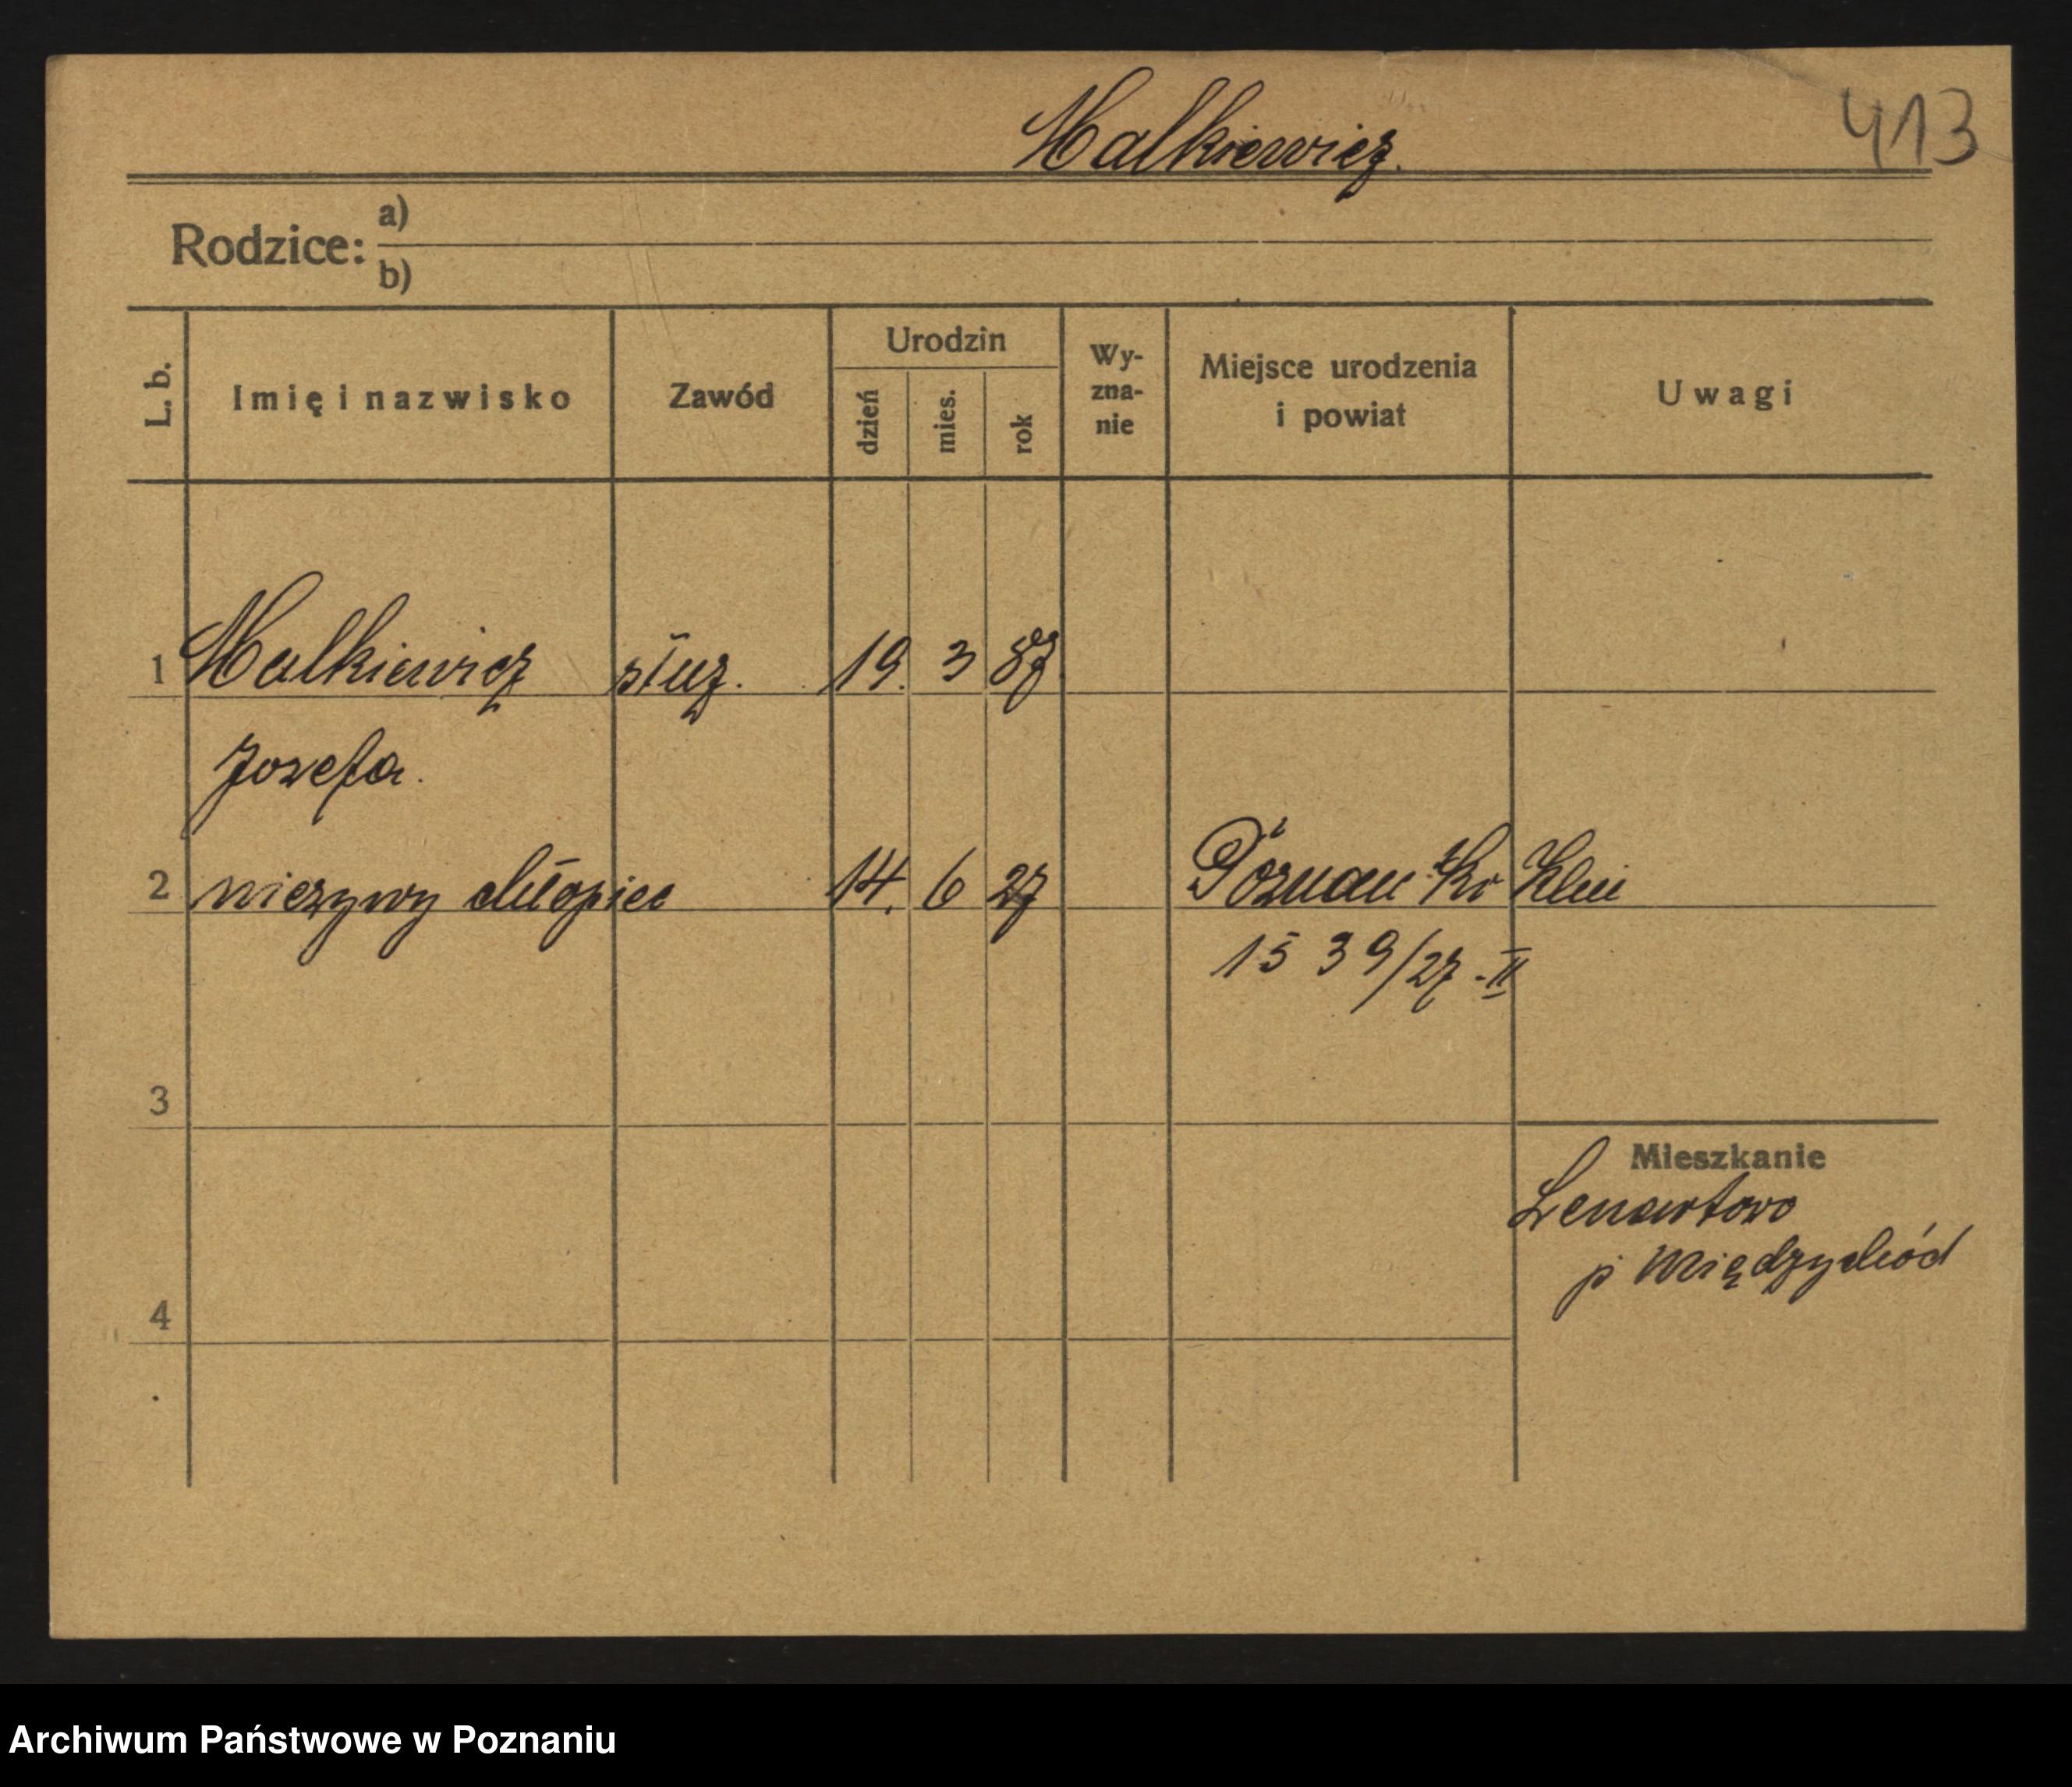 Malkiewicz.
413
Rodzice: a)
b)
L. b. Imię i nazwisko Zawód Urodzin dzień mies. rok Wy-zna-nie Miejsce urodzenia i powiat Uwagi
1 Malkiewicz służ. 19. 3 87
Jozefa.
2 nieżywy chłopiec 14. 6 27 Poznań
1539/27-II
3
Mieszkanie
Lenartowo
p Międzychód
4
Archiwum Państwowe w Poznaniu